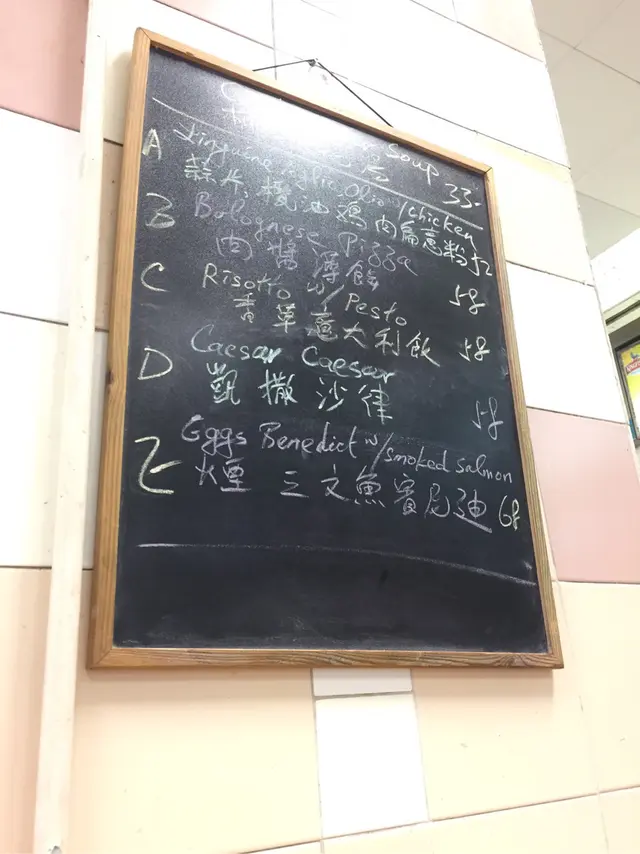 Soup
33.
A Linguine Aglio Olio w/chicken
蒜片欖油鷄肉扁意粉 52
B Bolognese Pizza
肉醬薄餅 58
C Risotto w/ Pesto
香草意大利飯 58
D Caesar Caesar
凱撒沙律 58
E Eggs Benedict w/smoked salmon
煙三文魚賓尼迪 68